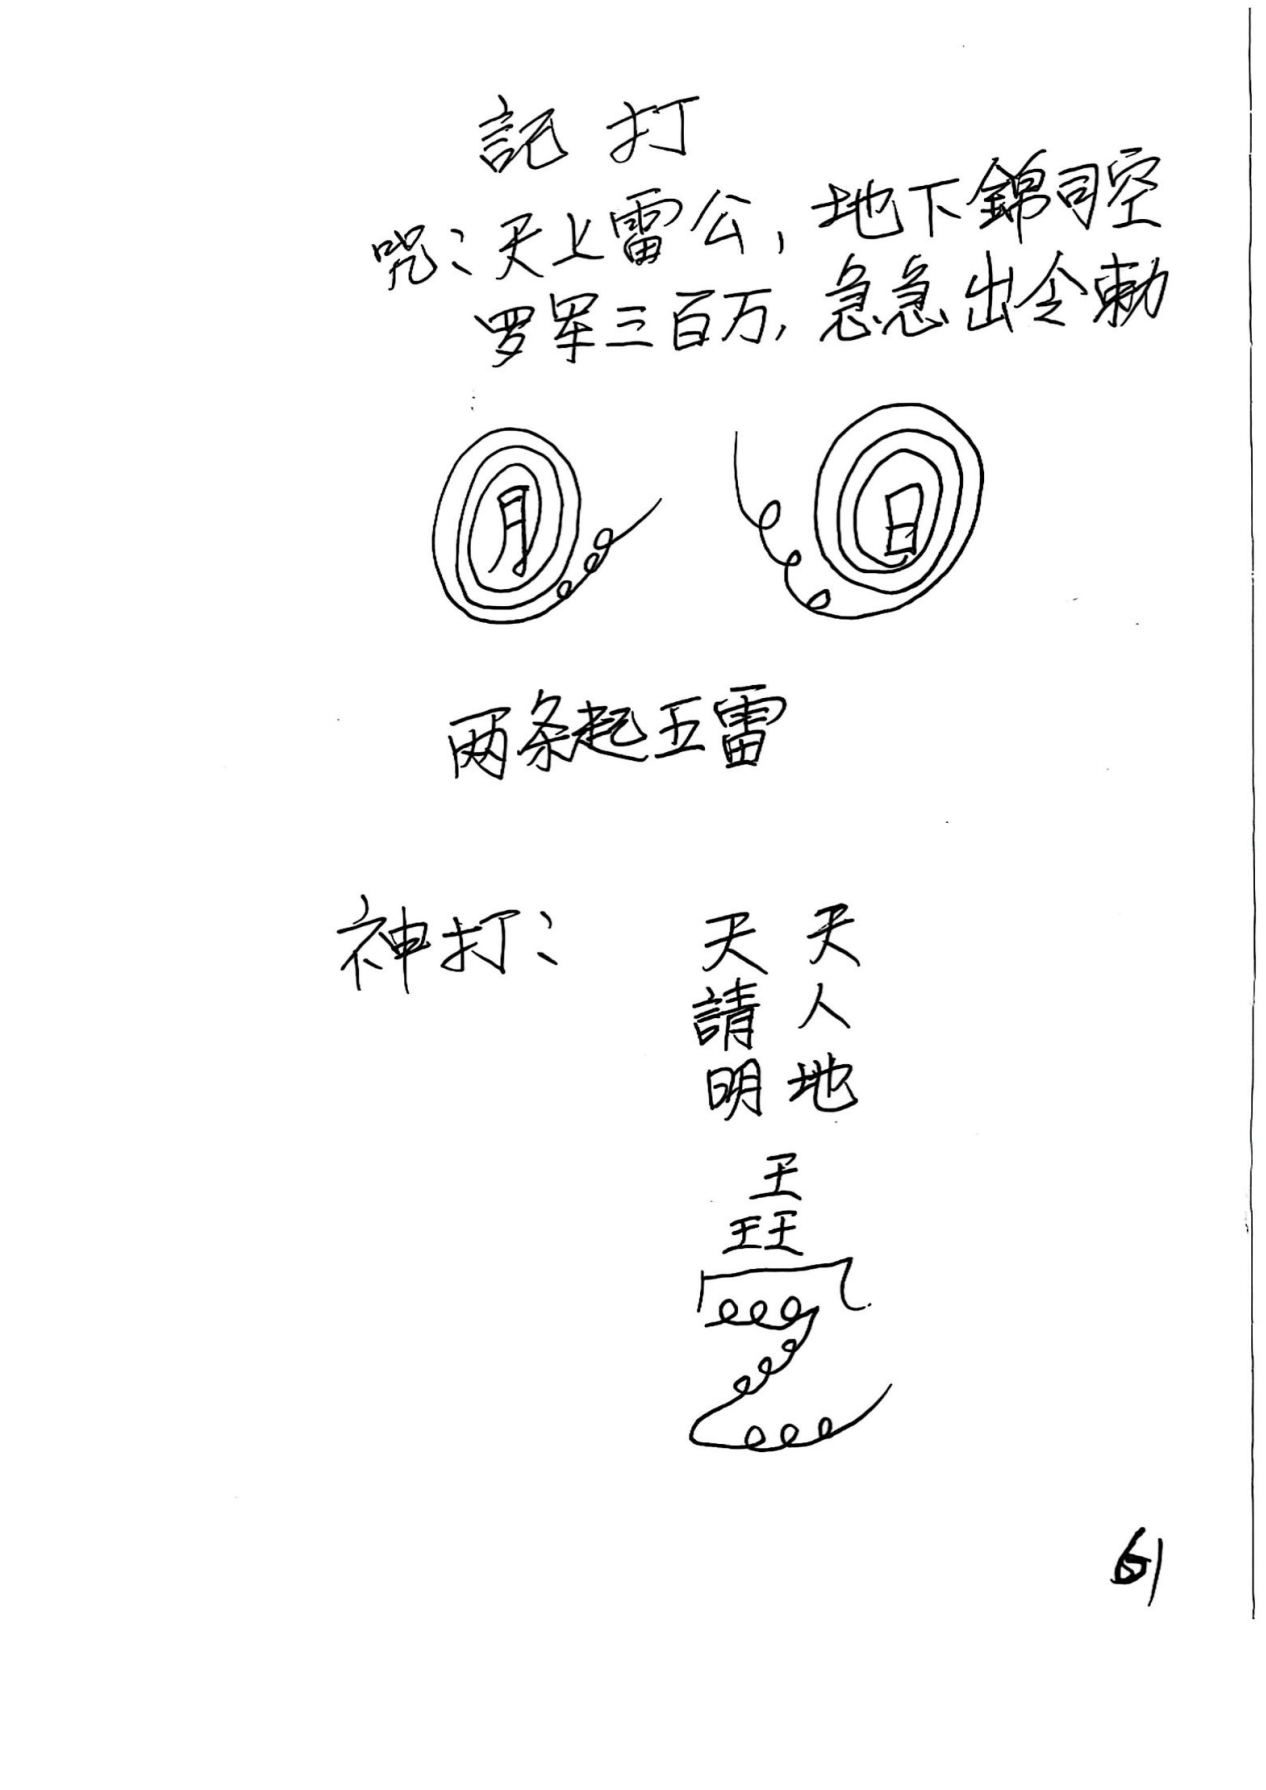 記打
咒:天上雷公,地下錦司空
罗军三百万,急急出令勅
月 日
两条起五雷
神打:
天 天
請 人
明 地
王
王王
61